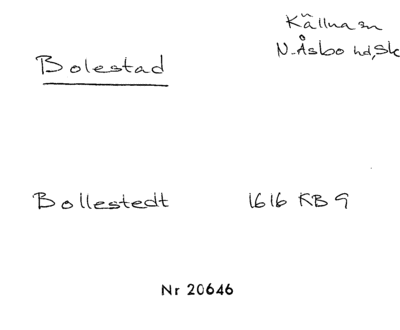 Källna sn
N. Åsbo hd, Sk
Bolestad
Bollestedt 1616 KB 9
Nr 20646